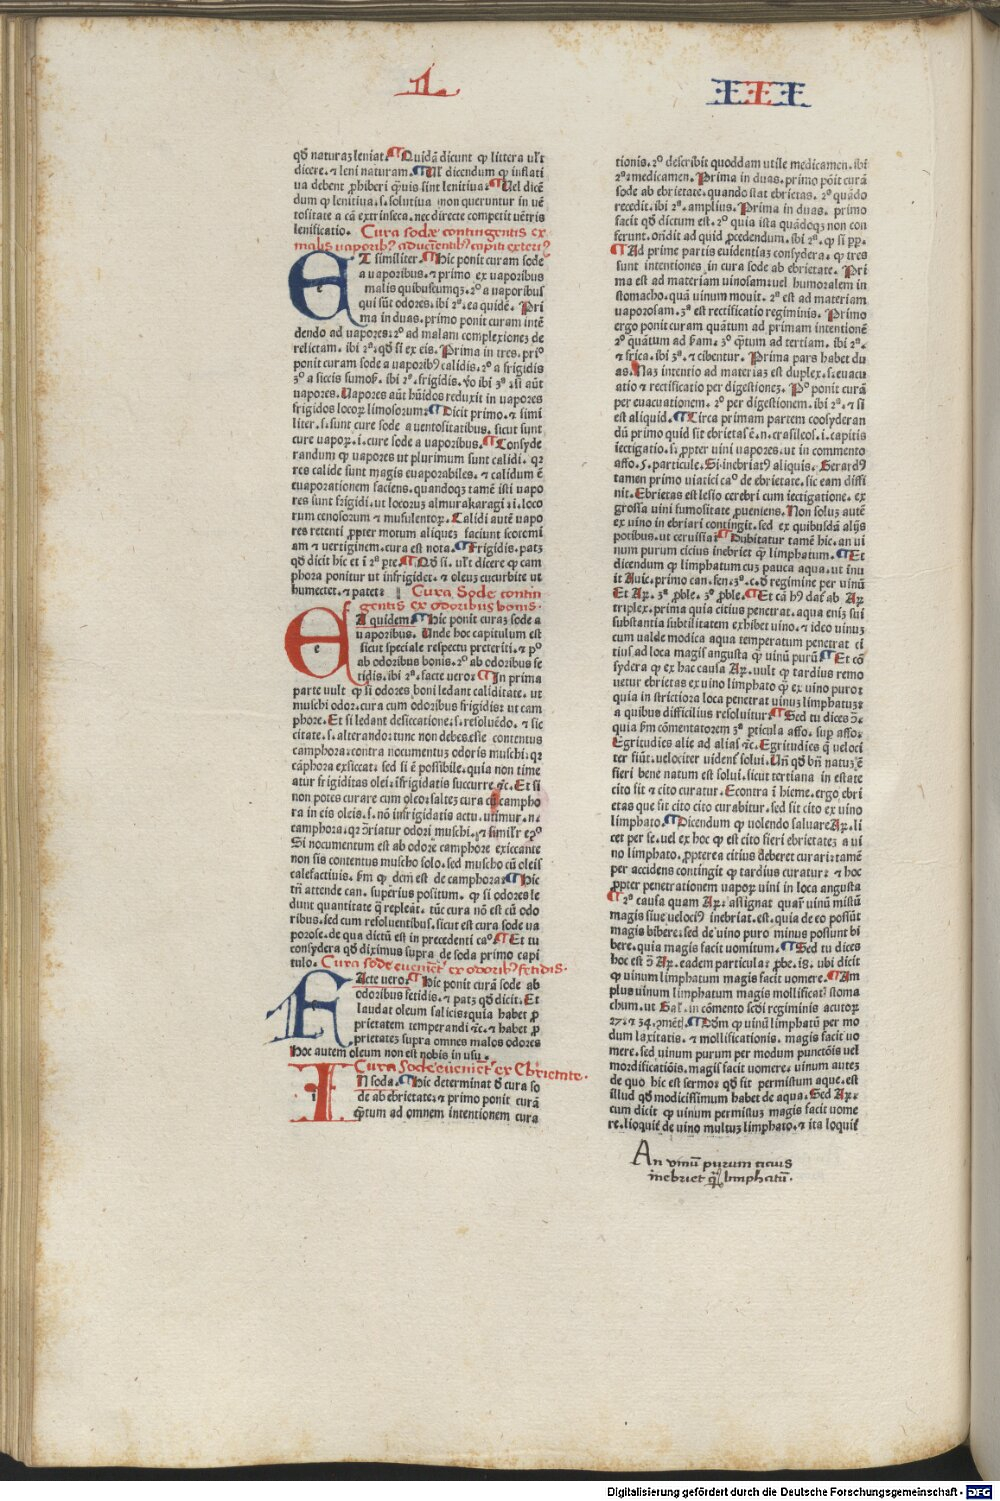 1
III
qđ naturaʒ leniat. ¶Quidā dicunt ꝙ littera ult
dicere. ⁊ leni naturam. ¶Ul' dicendum ꝙ inflati
ua debent ꝓhiberi ꝙuis sint lenitiua: ¶Uel dicē
dum ꝙ lenitiua. s. solutiua non queruntur in uē
tositate a cā extrinseca. nec directe competit uētris
lenificatio. Cura sodæ contingentis ex
malis uaporibꝰ aduenientibꝰ capiti exteriꝰ
ET similiter. ¶Hic ponit curam sode
a uaporibus. ⁊ primo ex uaporibus
malis quibuscumqʒ. 2º a uaporibus
qui sūt odores. ibi 2ª. ea quidē. Pri
ma in duas. primo ponit curam intē
dendo ad uapores. 2º ad malam complexioneʒ de
relictam. ibi 2ª: qđ si ex eis. Prima in tres. priº
ponit curam sode a uaporibꝰ calidis. 2º a frigidis
3º a siccis fumoß. ibi 2ª. frigidis. ꝟo ibi 3ª. si aūt
uapores. Uapores aūt hūidos reduxit in uapores
frigidos locoꝝ limosorum: ¶Dicit primo. ⁊ simi
liter. s. sunt cure sode a uentositatibus. sicut sunt
cure uapoꝝ. i. cure sode a uaporibus. ¶Consyde
randum ꝙ uapores ut plurimum sunt calidi. qꝛ
res calide sunt magis euaporabiles. ⁊ calidum ē
euaporationem faciens. quandoqʒ tamē isti uapo
res sunt frigidi. ut locoruʒ almurakaragi: i. loco
rum cenosorum ⁊ musulentoꝝ. Calidi autē uapo
res retenti ꝓpter motum aliqueʒ faciunt scotomi
am ⁊ uertiginem. cura est nota. ¶Frigidis. patʒ
qđ dicit hic et ī 2ª pte. ¶Qđ si. ult dicere ꝙ cam
phora ponitur ut infrigidet. ⁊ oleuʒ cucurbite ut
humectet. ⁊ patet: Cura Sode contin
gentis ex odoribus bonis.
EA quidem ¶Hic ponit curaʒ sode a
uaporibus. Unde hoc capitulum est
sicut speciale respectu preteriti. ⁊ pº
ab odoribus bonis. 2º ab odoribus fe
tidis. ibi 2ª. facte uero: ¶In prima
parte uult ꝙ si odores boni ledant caliditate. ut
muschi odor. cura cum odoribus frigidis: ut cam
phore. Et si ledant desiccatione. s. resoluēdo. ⁊ sic
citate. s. alterando: tunc non debes esse contentus
camphora: contra nocumentuʒ odoris muschi: qꝛ
cāphora exsiccat. sed si ē possibile. quia non time
atur frigiditas olei. īfrigidatis succurre ⁊c. Et si
non potes curare cum oleo: salteʒ cura cū campho
ra in eis oleis. s. nō infrigidatis actu. utimur. n.
camphora: qꝛ ɔ̄riatur odori muschi. ⁊ simil'r eꝯº
Si nocumentum est ab odore camphore exiccante
non sis contentus muscho solo. sed muscho cū oleis
calefactiuis. ẞm ꝙ dcm̄ est de camphora: ¶Hic
tn̄ attende can. superius positum. ꝙ si odores le
dunt quantitate ꝗ repleāt. tūc cura nō est cū odo
ribus. sed cum resoluentibus. sicut est cura sode ua
porose. de qua dictū est in precedenti caº. ¶Et tu
consydera qđ diximus supra de soda primo capi
tulo. Cura sodę eueniēt' ex odoribꝰ fetidis.
FActe uero: ¶Hic ponit curā sode ab
odoribus fetidis. ⁊ patʒ qđ dicit. Et
laudat oleum salicis: quia habet ꝓ
prietatem temperandi ⁊c. ⁊ habet ꝓ
prietates supra omnes malos odores
Hoc autem oleum non est nobis in usu.
Cura Sodę eueniēt' ex Ebrietate.
IN soda. ¶Hic determinat đ cura so
de ab ebrietate: ⁊ primo ponit curā
ꝙtum ad omnem intentionem cura
tionis. 2º describit quoddam utile medicamen. ibi
2ª: medicamen. Prima in duas. primo pōit curā
sode ab ebrietate. quando stat ebrietas. 2º quādo
recedit. ibi 2ª. amplius. Prima in duas. primo
facit qđ dictum est. 2º quia ista quādoqʒ non con
ferunt. oñdit ad quid ꝓcedendum. ibi 2ª. ꝙ si ꝓp.
¶Ad prime partis euidentiaʒ consydera. ꝙ tres
sunt intentiones in cura sode ab ebrietate. Pri
ma est ad materiam uinosam: uel humoralem in
stomacho. quā uinum mouit. 2ª est ad materiam
uaporosam. 3ª est rectificatio regiminis. Primo
ergo ponit curam quātum ad primam intentionē
2º quātum ad ẞam. 3º ꝙtum ad tertiam. ibi 2ª.
⁊ frica. ibi 3ª. ⁊ cibentur. Prima pars habet du
as. Naʒ intentio ad materiaʒ est duplex. s. euacu
atio ⁊ rectificatio per digestioneʒ. Pº ponit curā
per euacuationem. 2º per digestionem. ibi 2ª. ⁊ si
est aliquid. ¶Circa primam partem coosyderan
dū primo quid sit ebrietas ē. n. crasileos. i. capitis
iectigatio. s. ꝓpter uini uapores. ut in commento
affo. 5. particule. Si inebriatꝰ aliquis. Gerardꝰ
tamen primo uiatici caº de ebrietate. sic eam diffi
nit. Ebrietas est lesio cerebri cum iectigatione. ex
grossa uini fumositate ꝓueniens. Non soluʒ autē
ex uino in ebriari contingit. sed ex quibusdā alijs
potibus. ut ceruisia: ¶Dubitatur tamē hic. an ui
num purum cicius inebriet ꝙ limphatum. ¶Et
dicendum ꝙ limphatum cuʒ pauca aqua. ut inu
it Auic. primo can. fen. 3ª. c. đ regimine per uinū
Et Aꝝ. 3ª ꝓble. 3º ꝓble. ¶Et cā hꝰ dat' ab Aꝝ
triplex. prima quia citius penetrat. aqua eniʒ sui
substantia subtilitatem exhibet uino. ⁊ ideo uinuʒ
cum ualde modica aqua temperatum penetrat ci
tius ad loca magis angusta ꝙ uinū purū: ¶Et cō
sydera ꝙ ex hac causa Aꝝ. uult ꝙ tardius remo
uetur ebrietas ex uino limphato ꝙ ex uino puro:
quia in strictiora loca penetrat uinuʒ limphatuʒ:
a quibus difficilius resoluitur: ¶Sed tu dices ɔ̄.
quia ẞm cōmentatorem 3ª ꝑticula affo. sup affo:
Egritudines alie ad alias ⁊c. Egritudies ꝗ ueloci
ter fiūt. uelociter uidenť solui. Uñ qđ bñ natuʒ ē
fieri bene natum est solui. sicut tertiana in estate
cito fit ⁊ cito curatur. Econtra ī hieme. ergo ebri
etas que fit cito cito curabitur. sed fit cito ex uino
limphato. ¶Dicendum ꝙ uolendo saluare Aꝝ. li
cet per se. uel ex hoc ꝙ est cito fieri ebrietateʒ a ui
no limphato. ꝓpterea citius deberet curari: tamē
per accidens contingit ꝙ tardius curatur: ⁊ hoc
ꝓpter penetrationem uapoꝝ uini in loca angusta
¶2ª causa quam Aꝝ: assignat quař uinū mistū
magis siue uelociꝰ inebriat. est. quia de eo possūt
magis bibere. sed de uino puro minus possunt bi
bere. quia magis facit uomitum. ¶Sed tu dices
hoc est ɔ̄ Aꝝ. eadem particula: ꝓbe. 18. ubi dicit
ꝙ uinum limphatum magis facit uomere. ¶Am
plus uinum limphatum magis mollificat stoma
chum. ut Gal'. in cōmento scđi regiminis acutoꝝ
27. ⁊ 34. ɔment'. ¶Dđm ꝙ uinū limphatū per mo
dum laxitatis. ⁊ mollificationis. magis facit uo
mere. sed uinum purum per modum punctōis uel
mordificatiōis. magis facit uomere. uinum auteʒ
de quo hic est sermo: qđ sit permistum aque. est
illud qđ modicissimum habet de aqua. Sed Aꝝ.
cum dicit ꝙ uinum permistuʒ magis facit uome
re. lioquiť de uino multuʒ limphato. ⁊ ita loquiť
An vinū purum cicius
inebriet ꝗ̄ limphatū.
Digitalisierung gefördert durch die Deutsche Forschungsgemeinschaft - DFG